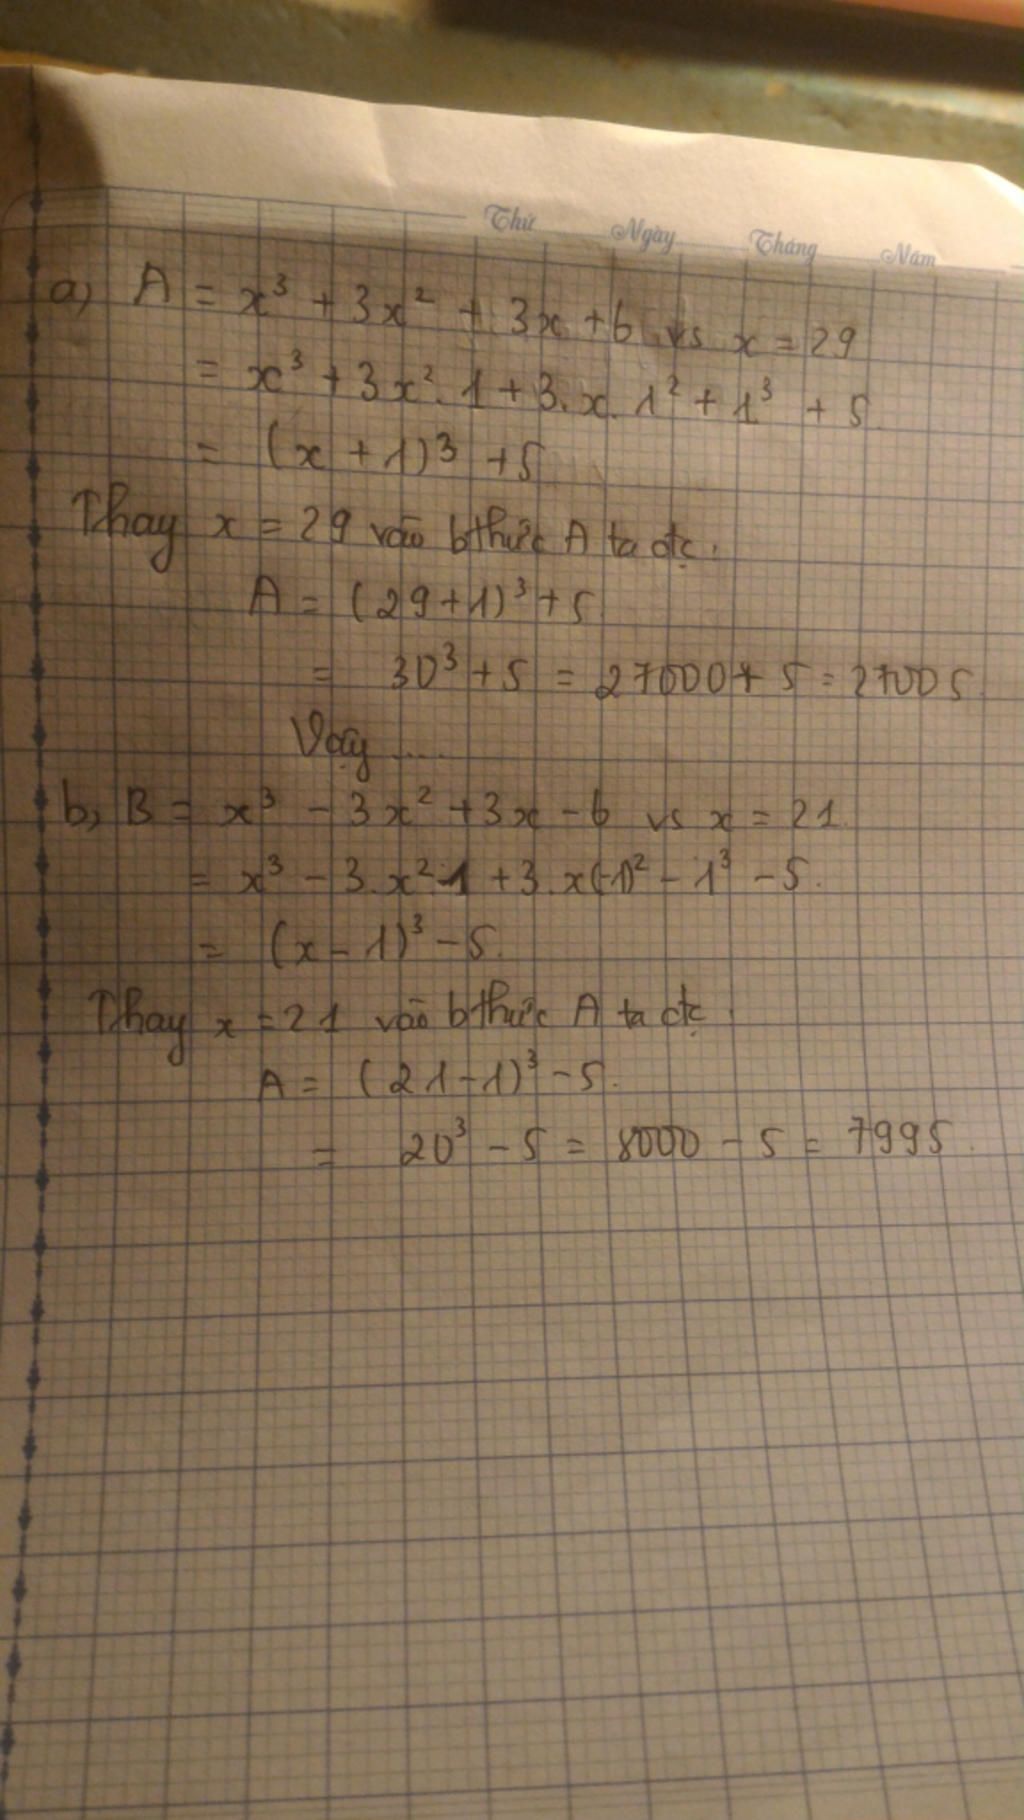 Thứ Ngày Tháng Năm
a, A = x³ + 3x² + 3x + 6 vs x = 29
= x³ + 3x².1 + 3.x.1² + 1³ + 5.
= (x + 1)³ + 5
Thay x = 29 vào bthức A ta đc.
A = (29+1)³ + 5
= 30³ + 5 = 27000 + 5 = 27005.
Vậy ....
b, B = x³ - 3x² + 3x - 6 vs x = 21.
= x³ - 3.x².1 + 3.x(-1)² - 1³ - 5.
= (x - 1)³ - 5.
Thay x = 21 vào bthức A ta đc.
A = (21-1)³ - 5.
= 20³ - 5 = 8000 - 5 = 7995.